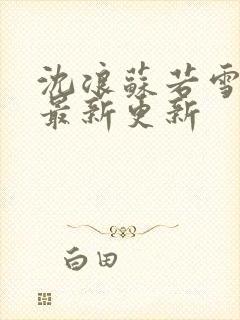 沈浪蘇若雪
最新更新
白田